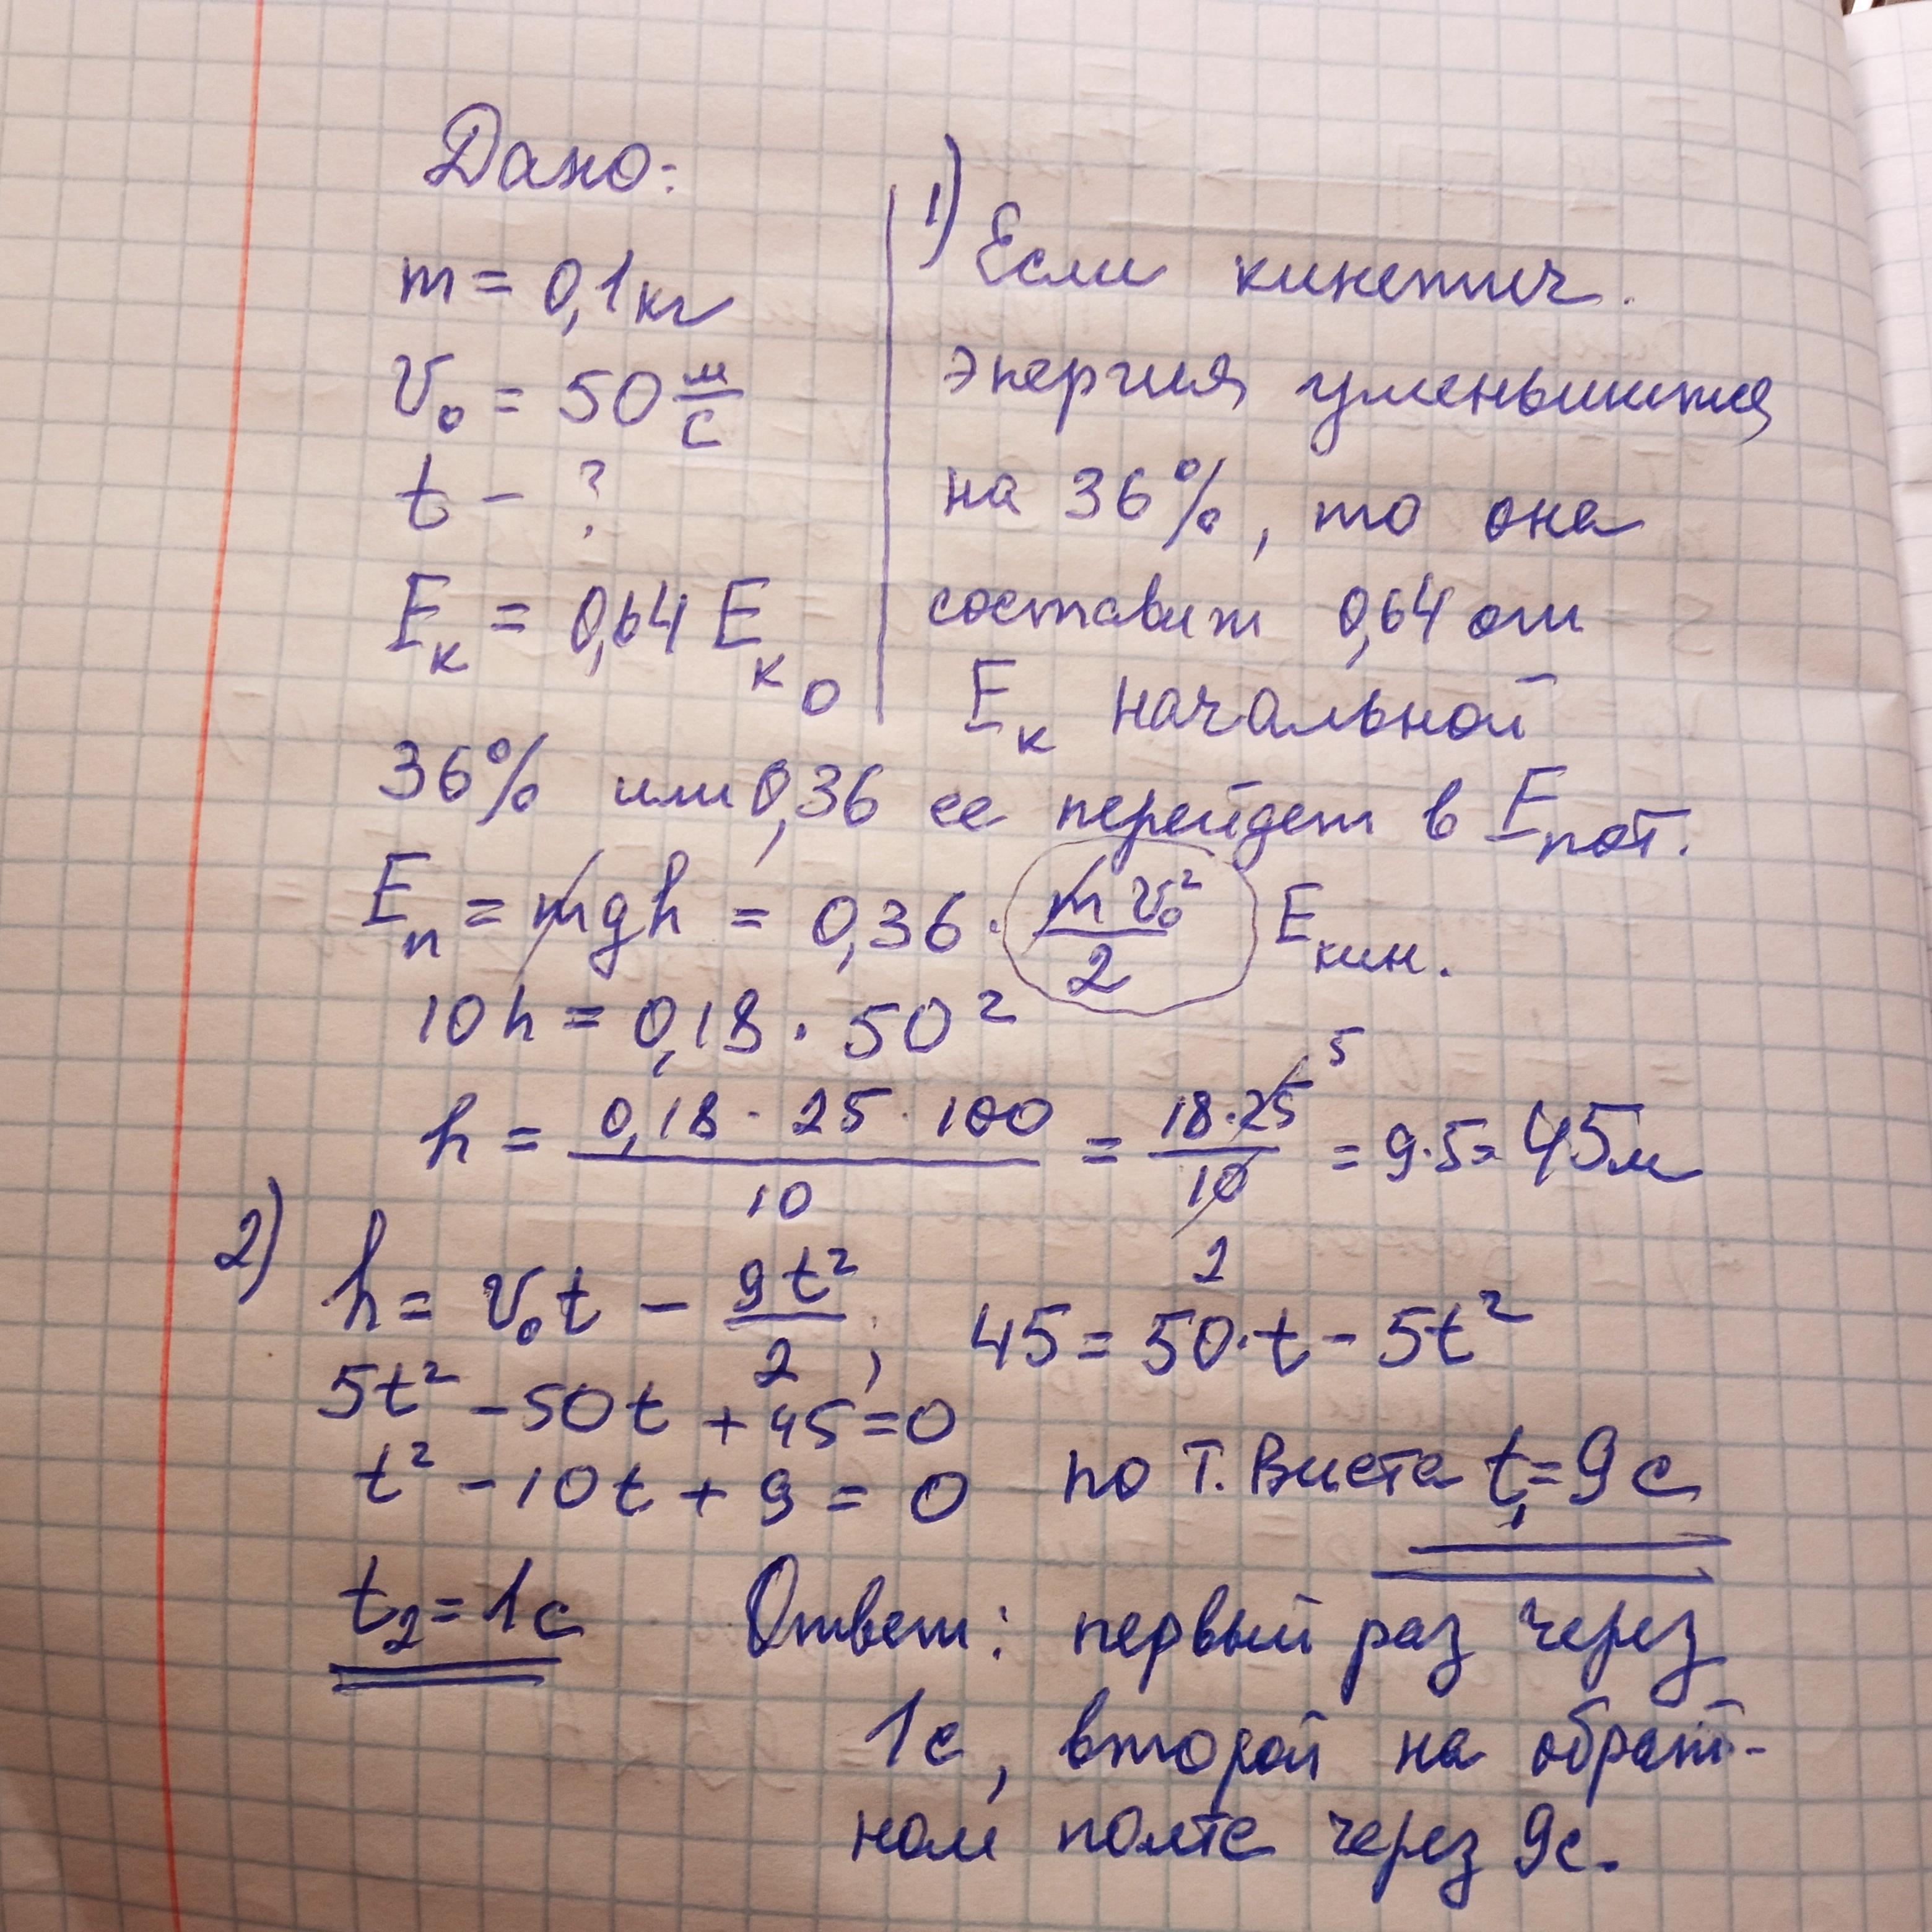 Дано:
m = 0,1 кг
v₀ = 50 м/с
t – ?
Eк = 0,64 Eк₀
1) Если кинетич.
энергия уменьшится
на 36%, то она
составит 0,64 от
Eк начальной
36% или 0,36 ее перейдет в Eпот.
Eп = mgh = 0,36 · mv₀²/2 Eкин.
10h = 0,18 · 50²
h = 0,18 · 25 · 100 / 10 = 18 · 25 5 / 10 2 = 9·5 = 45 м
2) h = v₀t – gt²/2 ; 45 = 50·t – 5t²
5t² – 50t + 45 = 0
t² – 10t + 9 = 0 по Т. Виета t₁ = 9 с
t₂ = 1 с Ответ: первый раз через
1 с, второй на обрат-
ном полте через 9 с.